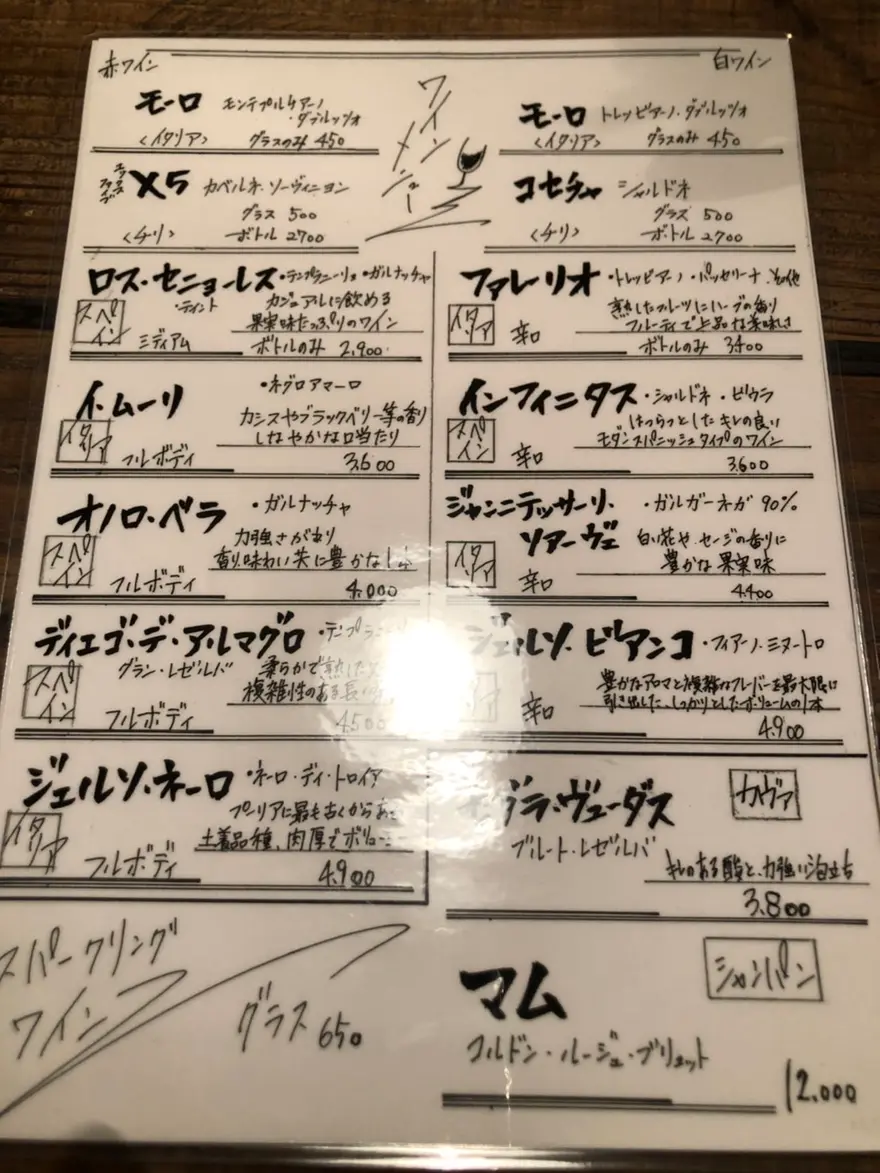 赤ワイン
モーロ モンテプルケアーノ
・ダブルッツォ
<イタリア> グラスのみ 450
エックス
ファイブ
X5 カベルネ・ソーヴィニヨン
グラス 500
<チリ> ボトル 2700
ワイン
メニュー
白ワイン
モーロ トレッビアーノ・ダブルッツォ
<イタリア> グラスのみ 450
コセチャ シャルドネ
グラス 500
<チリ> ボトル 2700
ロス・セニョーレス ・テンプラニーリョ・ガルナッチャ
・ティント
スペイン
カジュアルに飲める
果実味たっぷりのワイン
ミディアム ボトルのみ 2,900
イ・ムーリ ・ネグロアマーロ
イタリア
カシスやブラックベリー等の香り
しなやかな口当たり
フルボディ 3,600
オノロ・ベラ ・ガルナッチャ
スペイン
力強さがあり
香り、味わい共に豊かな1本
フルボディ 4,000
ディエゴ・デ・アルマグロ
グラン・レゼルバ
スペイン
柔らかで熟した
複雑性のある長い
フルボディ 4,500
ジェルソ・ネーロ ・ネーロ・ディ・トロイア
イタリア
プーリアに最も古くからある
土着品種、肉厚でボリュー
フルボディ 4,900
ファレーリオ ・トレッビアーノ・パッセリーナ、その他
イタリア
熟したフルーツにハーブの香り
フルーティで上品な美味しさ
辛口 ボトルのみ 3400
インフィニタス ・シャルドネ・ビウラ
スペイン
はつらつとしたキレの良い
モダンスパニッシュタイプのワイン
辛口 3,600
ジャンニテッサーリ・ ・ガルガーネガ 90%
ソアーヴェ
イタリア
白い花や、セージの香りに
豊かな果実味
辛口 4,400
ジェルソ・ビアンコ ・フィアーノ・ミヌートロ
豊かなアロマと複雑なフレーバーを最大限に
引き出した、しっかりとしたボリュームの1本
辛口 4,900
スパークリング
ワイン
グラス 650
グラ・ヴューダス
カヴァ
ブルート・レゼルバ
キレのある酸と、力強い泡立ち
3,800
マム
シャンパン
コルドン・ルージュ・ブリュット
12,000